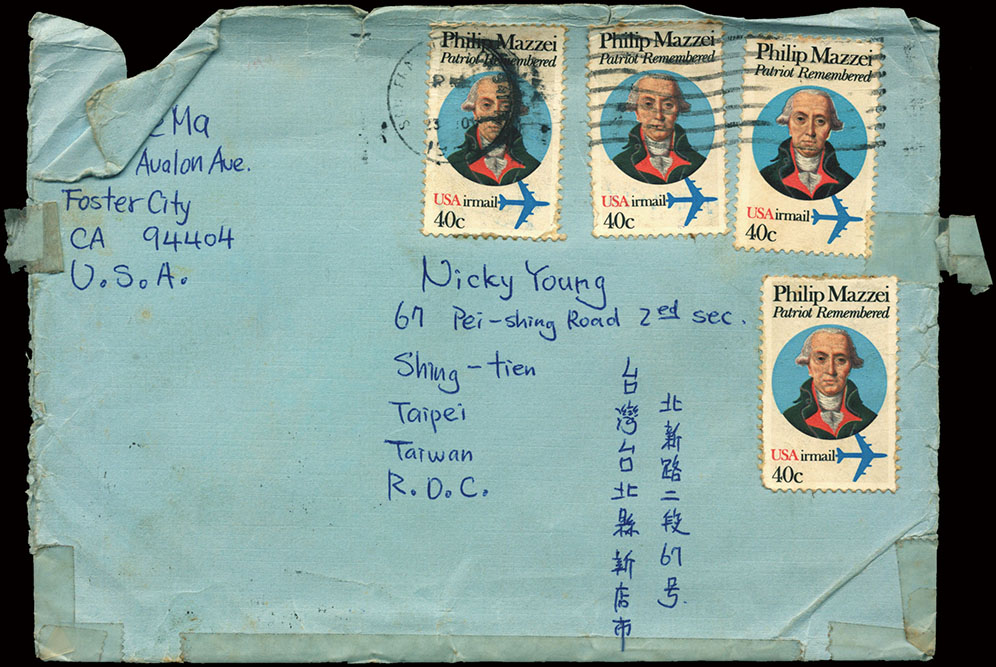 Ma
Avalon Ave.
Foster City
CA 94404
U.S.A.
Philip Mazzei
Patriot Remembered
USAirmail
40c
Philip Mazzei
Patriot Remembered
USAirmail
40c
Philip Mazzei
Patriot Remembered
USAirmail
40c
Philip Mazzei
Patriot Remembered
USAirmail
40c
Nicky Young
67 Pei-shing Road 2ed sec.
Shing-tien
Taipei
Taiwan
R.O.C.
台灣台北縣新店市
北新路二段67号.